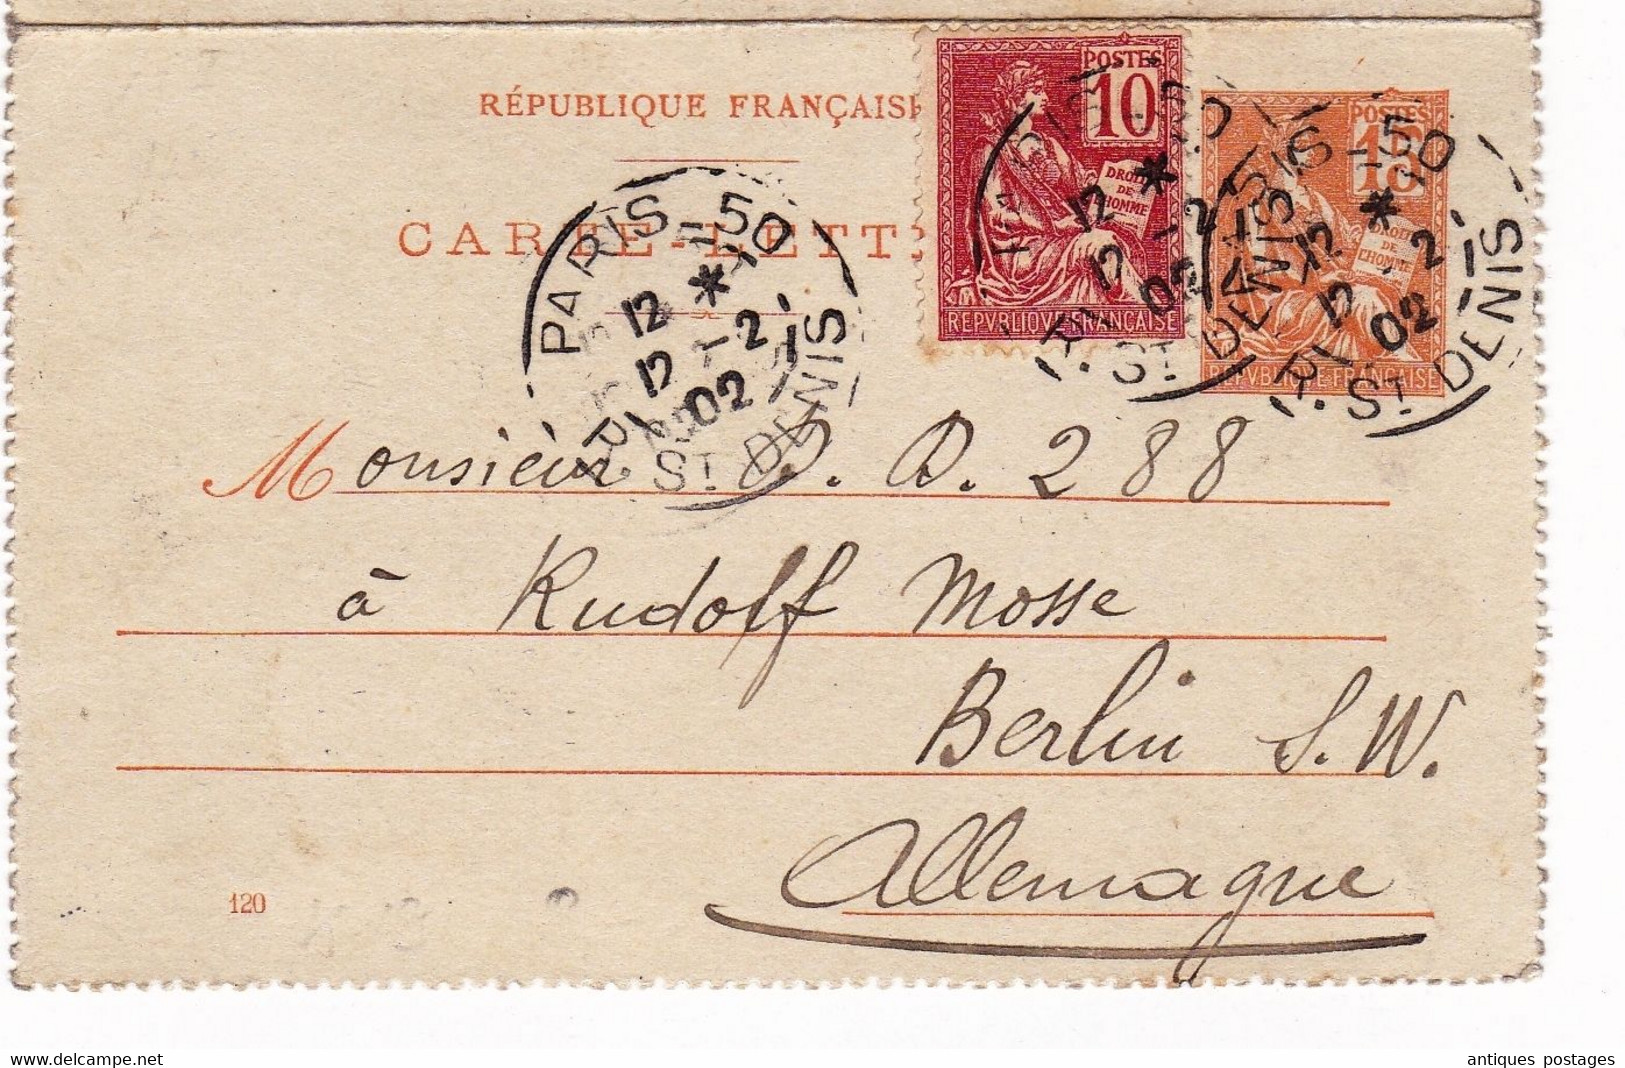 RÉPUBLIQUE FRANÇAIS
POSTES
10
DROIT
DE
L'HOMME
REPVBLIQVE FRANÇAISE
POSTES
15
DROIT
DE
L'HOMME
REPVBLIQVE FRANÇAISE
CARTE-LETT
PARIS-50
12 *
12 - 2
02
R. ST DENIS
PARIS
12 *
12 - 2
02
R. ST DENIS
12 *
12 2
02
R. ST DENIS
Monsieur D. D. 288
à Rudolf Mosse
Berlin S.W.
Allemagne
120
www.delcampe.net
antiques postages